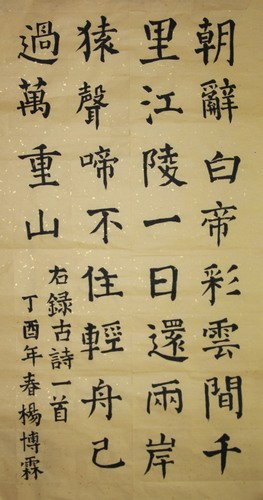 朝辭白帝彩雲間千
里江陵一日還兩岸
猿聲啼不住輕舟已
過萬重山
右錄古詩一首
丁酉年春楊博霖